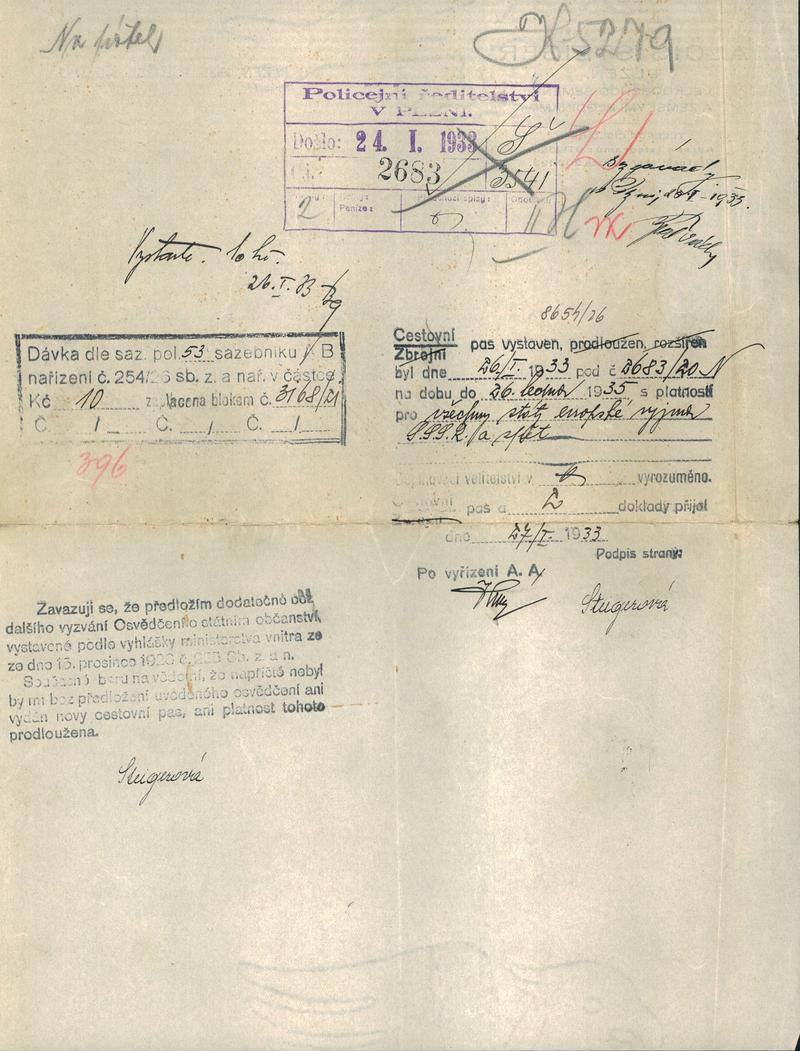 K 5279
Policejní ředitelství
V PLZNI.
Došlo: 24. I. 1933
Č.j. 2683
3541
2
Peníze:
26.I.33
8654/26
Dávka dle saz. pol. 53 sazebníku B
nařízení č. 254/26 sb. z. a nař. v částce
Kč 10 zaplacena blokem č. 3168/21
Č. / Č. / Č. /
396
Cestovní pas vystaven, prodloužen, rozšířen
Zbrojní
byl dne 26/I. 1933 pod č 2683/20 N
na dobu do 26. ledna 1935 s platností
pro všechny státy evropské vyjma
S.S.S.R. a zpět
velitelství v vyrozuměno.
Cestovní pas a doklady přijal
dne 27/I. 1933
Podpis strany:
Po vyřízení A. A.
Steigerová
Zavazuji se, že předložím dodatečně bez
dalšího vyzvání Osvědčení o státním občanství,
vystavené podle vyhlášky ministerstva vnitra ze
ze dne 15. prosince 1926 č. 225 Sb. z. a n.
Současně beru na vědomí, že napříště nebyl
by mi bez předložení uvedeného osvědčení ani
vydán nový cestovní pas, ani platnost tohoto
prodloužena.
Steigerová